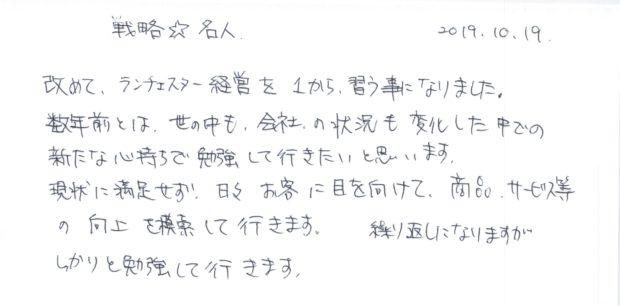 戦略☆名人 2019.10.19.
改めて、ランチェスター経営を1から、習う事になりました。
数年前とは、世の中も、会社の状況も変化した中での
新たな心持ちで勉強して行きたいと思います。
現状に満足せず、日々お客に目を向けて、商品、サービス等
の向上を模索して行きます。 繰り返しになりますが
しかりと勉強して行きます。